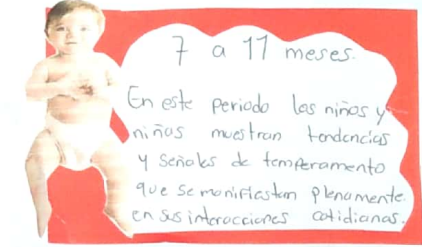 7 a 11 meses.
En este periodo las niñas y
niños muestran tendencias
y señales de temperamento
que se manifiestan plenamente
en sus interacciones cotidianas.